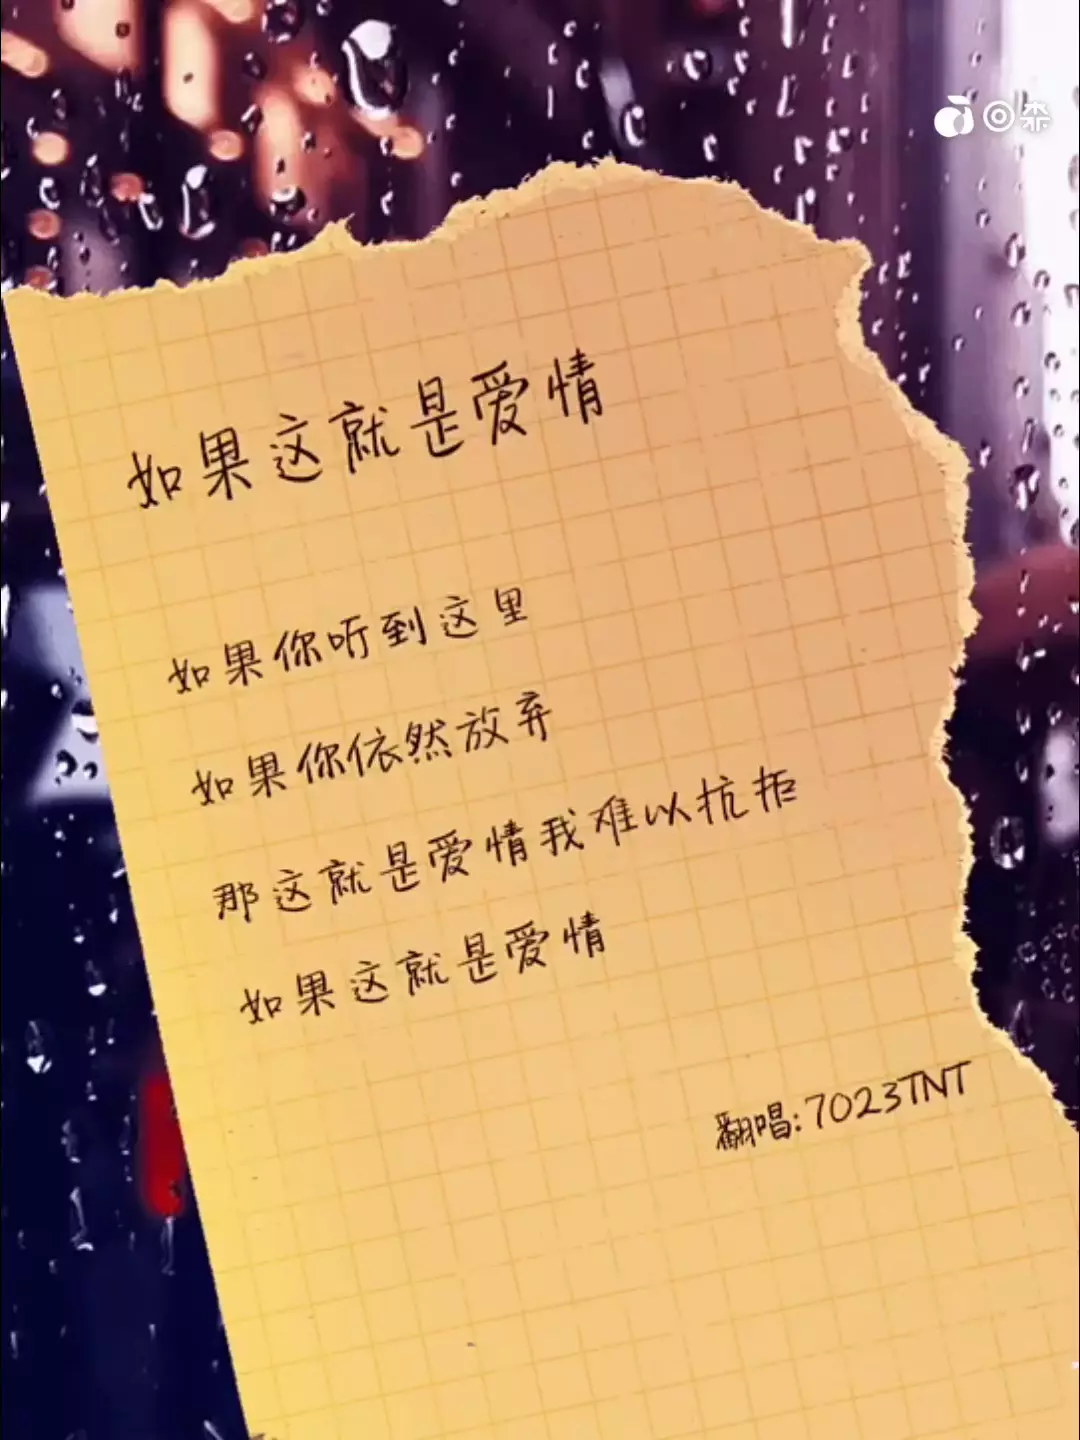 回森
如果这就是爱情
如果你听到这里
如果你依然放弃
那这就是爱情我难以抗拒
如果这就是爱情
翻唱:7023TNT